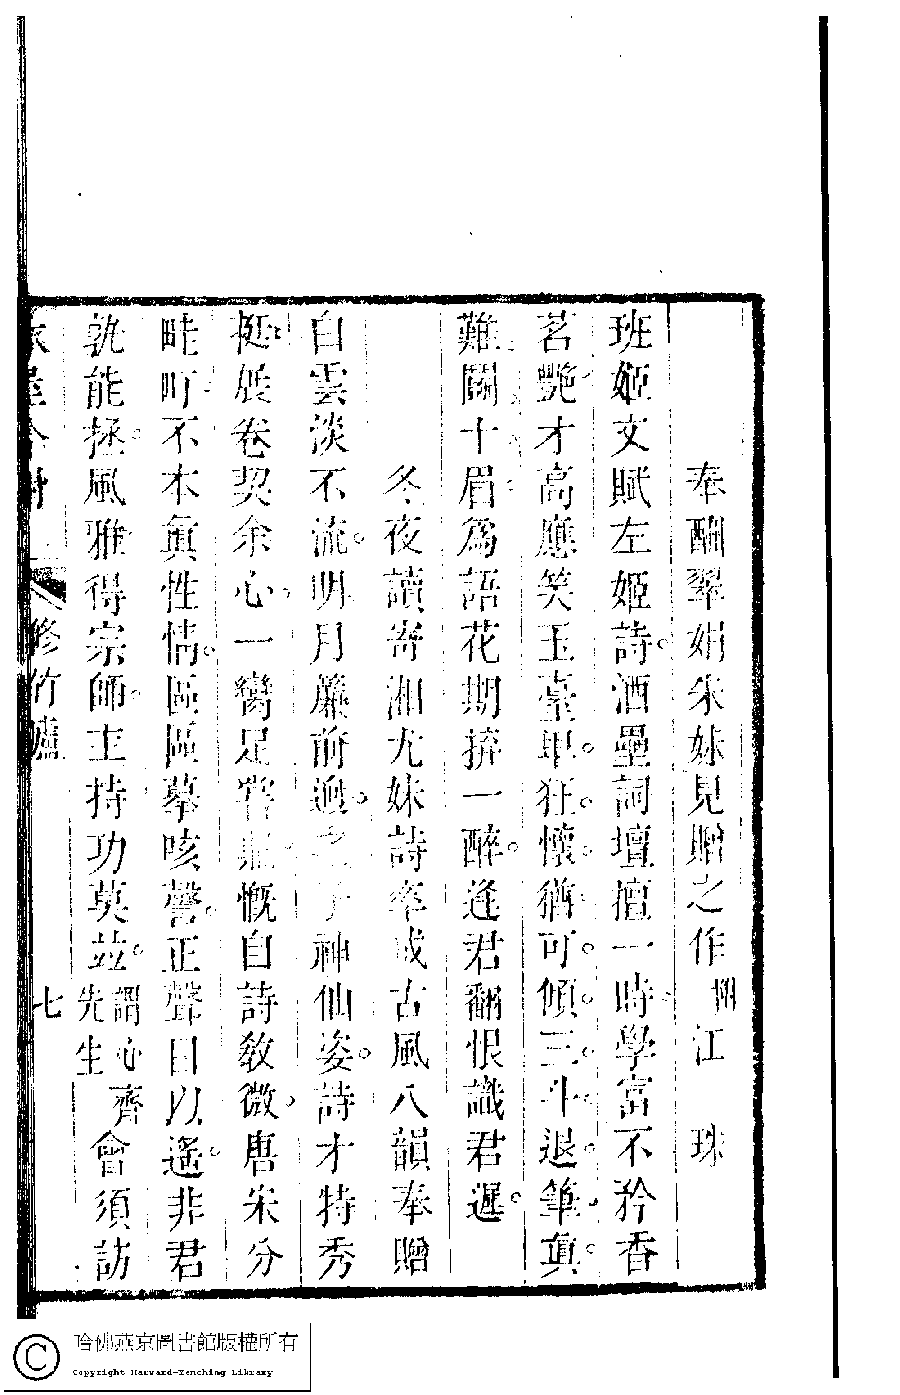 奉酬翠娟朱妹見贈之作 江珠
班姬文賦左姬詩酒壘詞壇擅一時學富不矜香
茗艷才高應笑玉臺卑狂懷猶可傾三斗退筆眞
難鬭十眉爲語花期拚一醉逢君翻恨識君遲
冬夜讀寄湘尤妹詩率成古風八韻奉贈
白雲淡不流明月簾前過之子神仙姿詩才特秀
挺展卷契余心一臠足 慨自詩敎微唐宋分
畦町不本眞性情區區摹咳謦正聲日以遙非君
孰能拯風雅得宗師主持功莫竝謂心齊先生會須訪
修竹廬
七
哈佛燕京圖書館版權所有
Copyright Harvard-Yenching Library